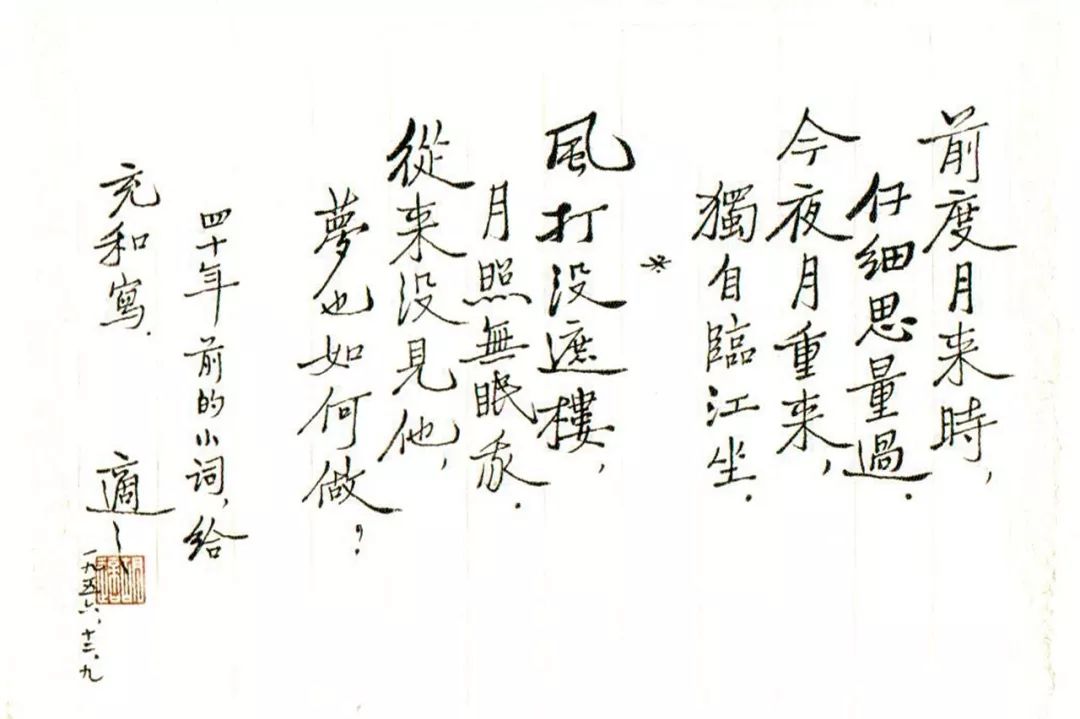 前度月来時,
仔細思量過.
今夜月重来,
獨自臨江坐.
*
風打没遮樓,
月照無眠我.
從来没見他,
夢也如何做?
四十年前的小詞,給
充和寫.
適之
一九五六,十二,九